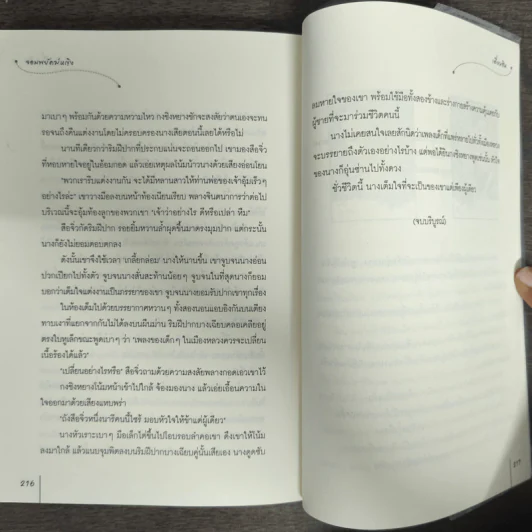 จอมทัพ
มาเบาๆ พร้อมกันด้วยความหวามไหว กงซิงหยางชักจะสงสัยว่าตนเองจะทน
รอจนถึงคืนแต่งงานโดยไม่ครอบครองนางเสียตอนนี้เลยได้หรือไม่
นานทีเดียวกว่าริมฝีปากที่ประกบแน่นจะถอนออกไป เขามองสือจิ่ว
ที่หอบหายใจอยู่ในอ้อมกอด แล้วเอ่ยเหตุผลโน้มน้าวนางด้วยเสียงอ่อนโยน
"พวกเรารีบแต่งงานกัน จะได้มีหลานสาวให้ท่านพ่อของเจ้าอุ้มเร็วๆ
อย่างไรล่ะ" เขาวางมือลงบนหน้าท้องเนียนเรียบ พลางจินตนาการว่าต่อไป
บริเวณนี้จะอุ้มท้องลูกของพวกเขา "เจ้าว่าอย่างไร ดีหรือเปล่า หืม"
สือจิ่วกัดริมฝีปาก รอยยิ้มหวานล้ำผุดขึ้นมาตรงมุมปาก แต่กระนั้น
นางก็ยังไม่ยอมตอบตกลง
ดังนั้นเขาจึงใช้เวลา 'เกลี้ยกล่อม' นางให้นานขึ้น เขาจูบจนนางอ่อน
ปวกเปียกไปทั้งตัว จูบจนนางสั่นสะท้านน้อยๆ จูบจนในที่สุดนางก็ยอม
บอกว่าเต็มใจแต่งงานเป็นภรรยาของเขา จูบจนนางยอมรับปากเขาทุกเรื่อง
ในห้องเต็มไปด้วยบรรยากาศหวานๆ ทั้งสองนอนแอบอิงกันบนเตียง
ทาบเงาที่แยกจากกันไม่ได้ลงบนผืนม่าน ริมฝีปากบางเฉียบคลอเคลียอยู่
ตรงใบหูเล็กขณะพูดเบาๆ ว่า "เพลงของเด็กๆ ในเมืองหลวงควรจะเปลี่ยน
เนื้อร้องได้แล้ว"
"เปลี่ยนอย่างไรหรือ" สือจิ่วถามด้วยความสงสัยพลางกอดเอวเขาไว้
กงซิงหยางโน้มหน้าเข้าไปใกล้ จ้องมองนาง แล้วเอ่ยเอื้อนความใน
ใจออกมาด้วยเสียงแหบพร่า
"ถังสือจิ่วหนึ่งนารีคนนี้ไซร้ มอบหัวใจให้ข้าแต่ผู้เดียว"
นางหัวเราะเบาๆ มือเล็กโต่ขึ้นไปโอบรอบลำคอเขา ดึงเขาให้โน้ม
ลงมาใกล้ แล้วแนบจุมพิตลงบนริมฝีปากบางเฉียบคู่นั้นเสียเอง นางดูดซับ
216
ลมหายใจของเขา พร้อมใช้มือทั้งสองข้างและร่างกายสร้างความ
ผู้ชายที่จะมาร่วมชีวิตคนนี้
นางไม่เคยสนใจเลยสักนิดว่าเพลงเด็กที่แพร่หลายไปทั่ว
จะบรรยายถึงตัวเองอย่างไรบ้าง แต่พอได้ยิน
ของนางก็อุ่นซ่านไปทั้งดวง
ชั่วชีวิตนี้ นางเต็มใจที่จะเป็นของเขาแต่เพียงผู้เดียว
(จบบริบูรณ์)